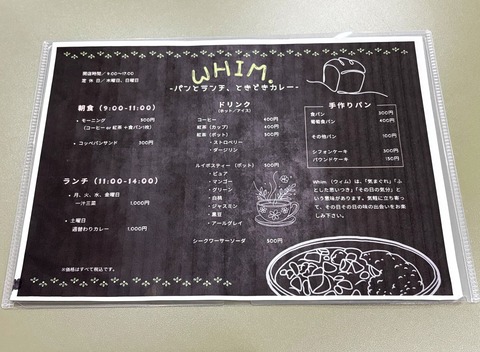 開店時間/9:00〜17:00
定 休 日/木曜日、日曜日
WHIM.
-パンとランチ、ときどきカレー-
朝食（9:00-11:00）
・モーニング 500円
（コーヒー or 紅茶 + 食パン1枚）
・コッペパンサンド 300円
ランチ（11:00-14:00）
・月、火、水、金曜日
一汁三菜 1,000円
・土曜日
週替わりカレー 1,000円
※価格はすべて税込です。
ドリンク
（ホット／アイス）
コーヒー 400円
紅茶（カップ） 400円
紅茶（ポット） 500円
・ストロベリー
・ダージリン
ルイボスティー（ポット） 500円
・ピュア
・マンゴー
・グリーン
・白桃
・ジャスミン
・黒豆
・アールグレイ
シークワーサーソーダ 500円
手作りパン
食パン 300円
葡萄食パン 400円
その他パン 100円
シフォンケーキ 300円
パウンドケーキ 150円
Whim（ウィム）は、「気まぐれ」「ふ
とした思いつき」「その日の気分」と
いう意味があります。気軽に立ち寄っ
て、その日その日の味の出会いをお楽
しみ下さい。